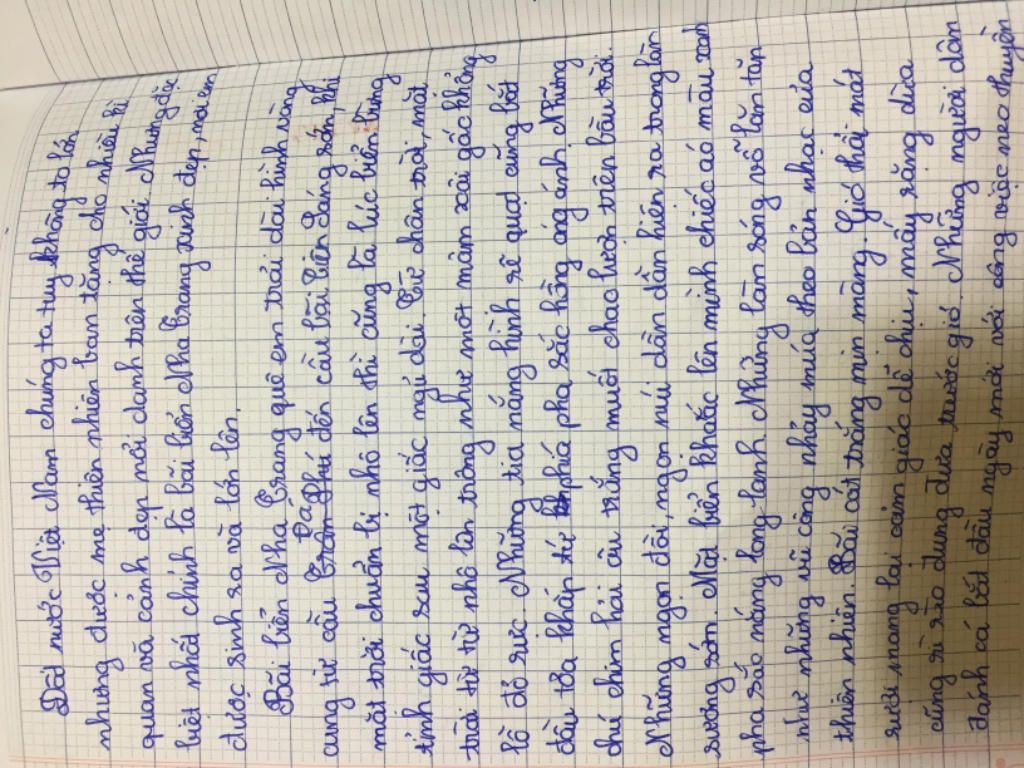 Đất nước Việt Nam chúng ta tuy không to lớn
nhưng được mẹ thiên nhiên ban tặng cho nhiều kì
quan và cảnh đẹp nổi danh trên thế giới. Nhưng đặc
biệt nhất chính là bãi biển Nha Trang xinh đẹp, nơi em
được sinh ra và lớn lên.
Bãi biển Nha Trang quê em trải dài hình vòng
cung từ cầu Trần Phú đến cầu Bãi Tiên. Sáng sớm, khi
mặt trời chuẩn bị nhô lên thì cũng là lúc biển bừng
tỉnh giấc sau một giấc ngủ dài. Từ chân trời, mặt
trời từ từ nhô lên trông như một mâm xôi gấc khổng
lồ đỏ rực. Những tia nắng hình rẽ quạt cũng bắt
đầu tỏa khắp từ phía pha sắc hồng óng ánh. Những
chú chim hải âu trắng muốt chao lượn trên bầu trời.
Những ngọn đồi, ngọn núi dần dần hiện ra trong làn
sương sớm. Mặt biển khoác lên mình chiếc áo màu xanh
pha sắc nắng long lanh. Những làn sóng vỗ lăn tăn
như những vũ công nhảy múa theo bản nhạc của
thiên nhiên. Bãi cát trắng mịn màng. Gió thổi mát
rượi mang lại cảm giác dễ chịu, mấy rặng dừa
cũng rì rào đung đưa trước gió. Những người dân
đánh cá bắt đầu ngày mới với công việc neo thuyền